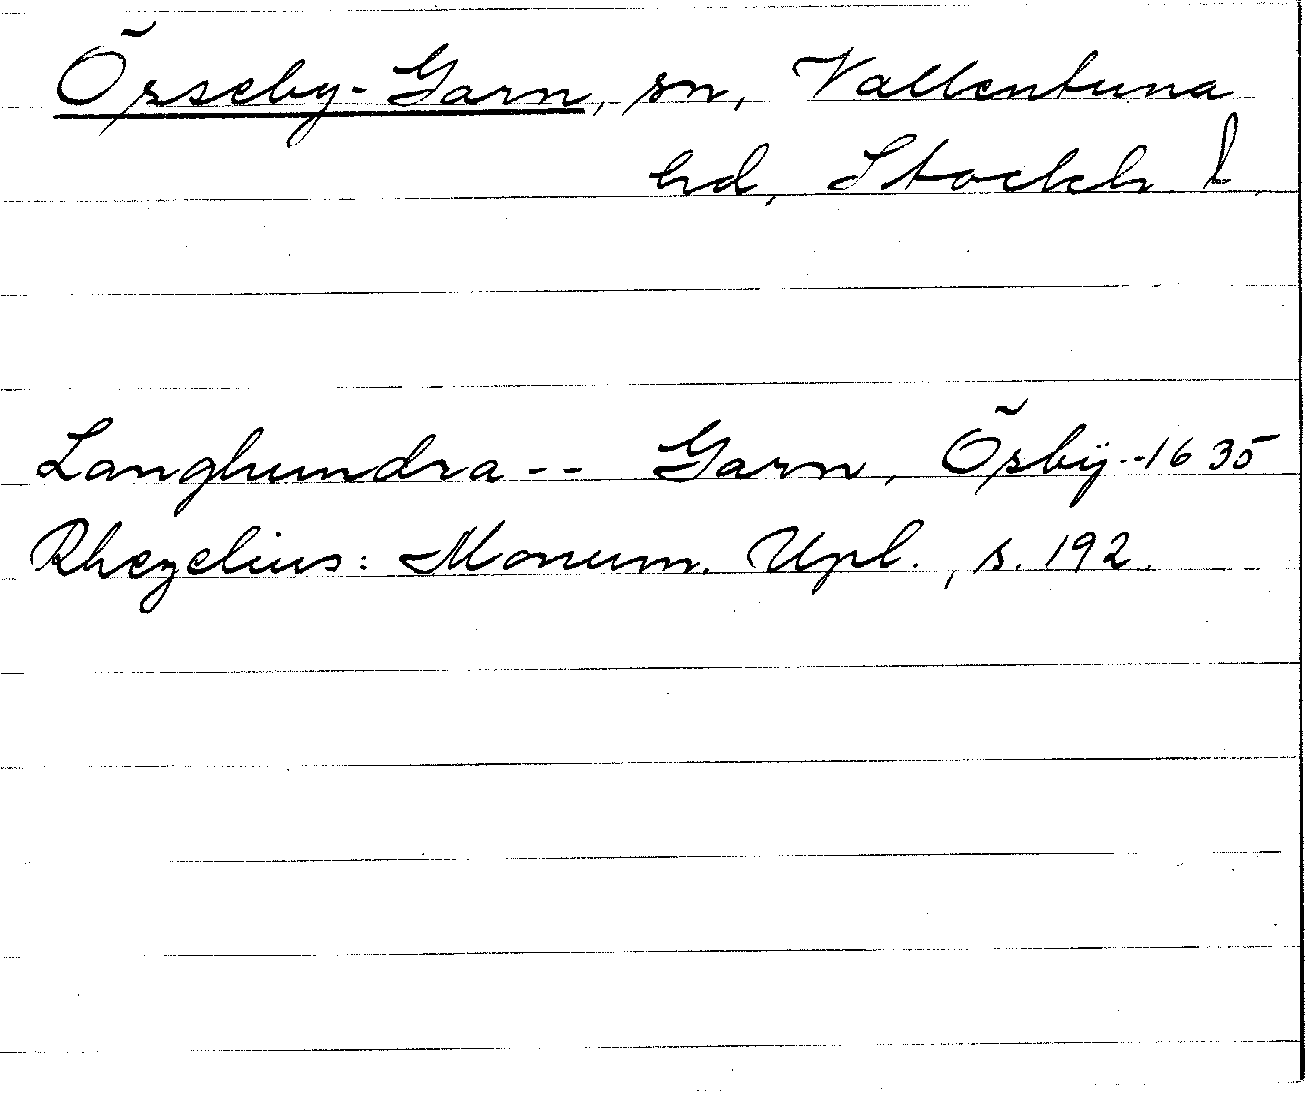 Örseby-Garn, sn, Vallentuna
hd, Stockh. l.
Langhundra -- Garn, Örbÿ--1635
Rhezelius: Monum. Upl., s. 192.